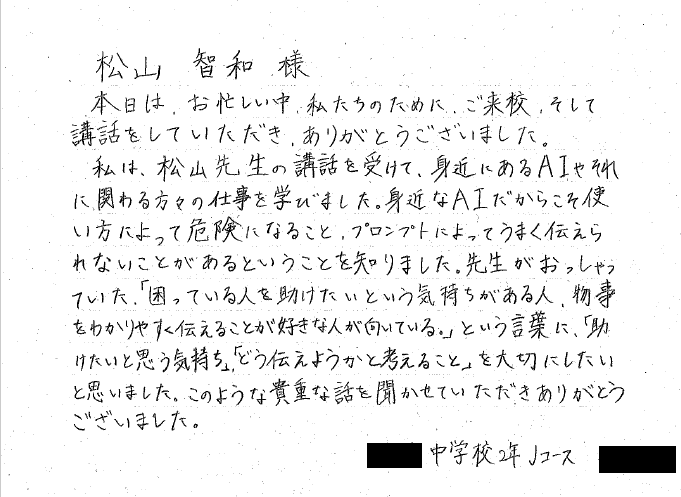 松山 智和 様
本日は、お忙しい中、私たちのために、ご来校、そして
講話をしていただき、ありがとうございました。
私は、松山先生の講話を受けて、身近にあるAIやそれ
に関わる方々の仕事を学びました。身近なAIだからこそ使
い方によって危険になること、プロンプトによってうまく伝えら
れないことがあるということを知りました。先生がおっしゃっ
ていた、「困っている人を助けたいという気持ちがある人、物事
をわかりやすく伝えることが好きな人が向いている。」という言葉に、「助
けたいと思う気持ち」、「どう伝えようかと考えること」を大切にしたい
と思いました。このような貴重な話を聞かせていただきありがとう
ございました。
中学校2年Jコース